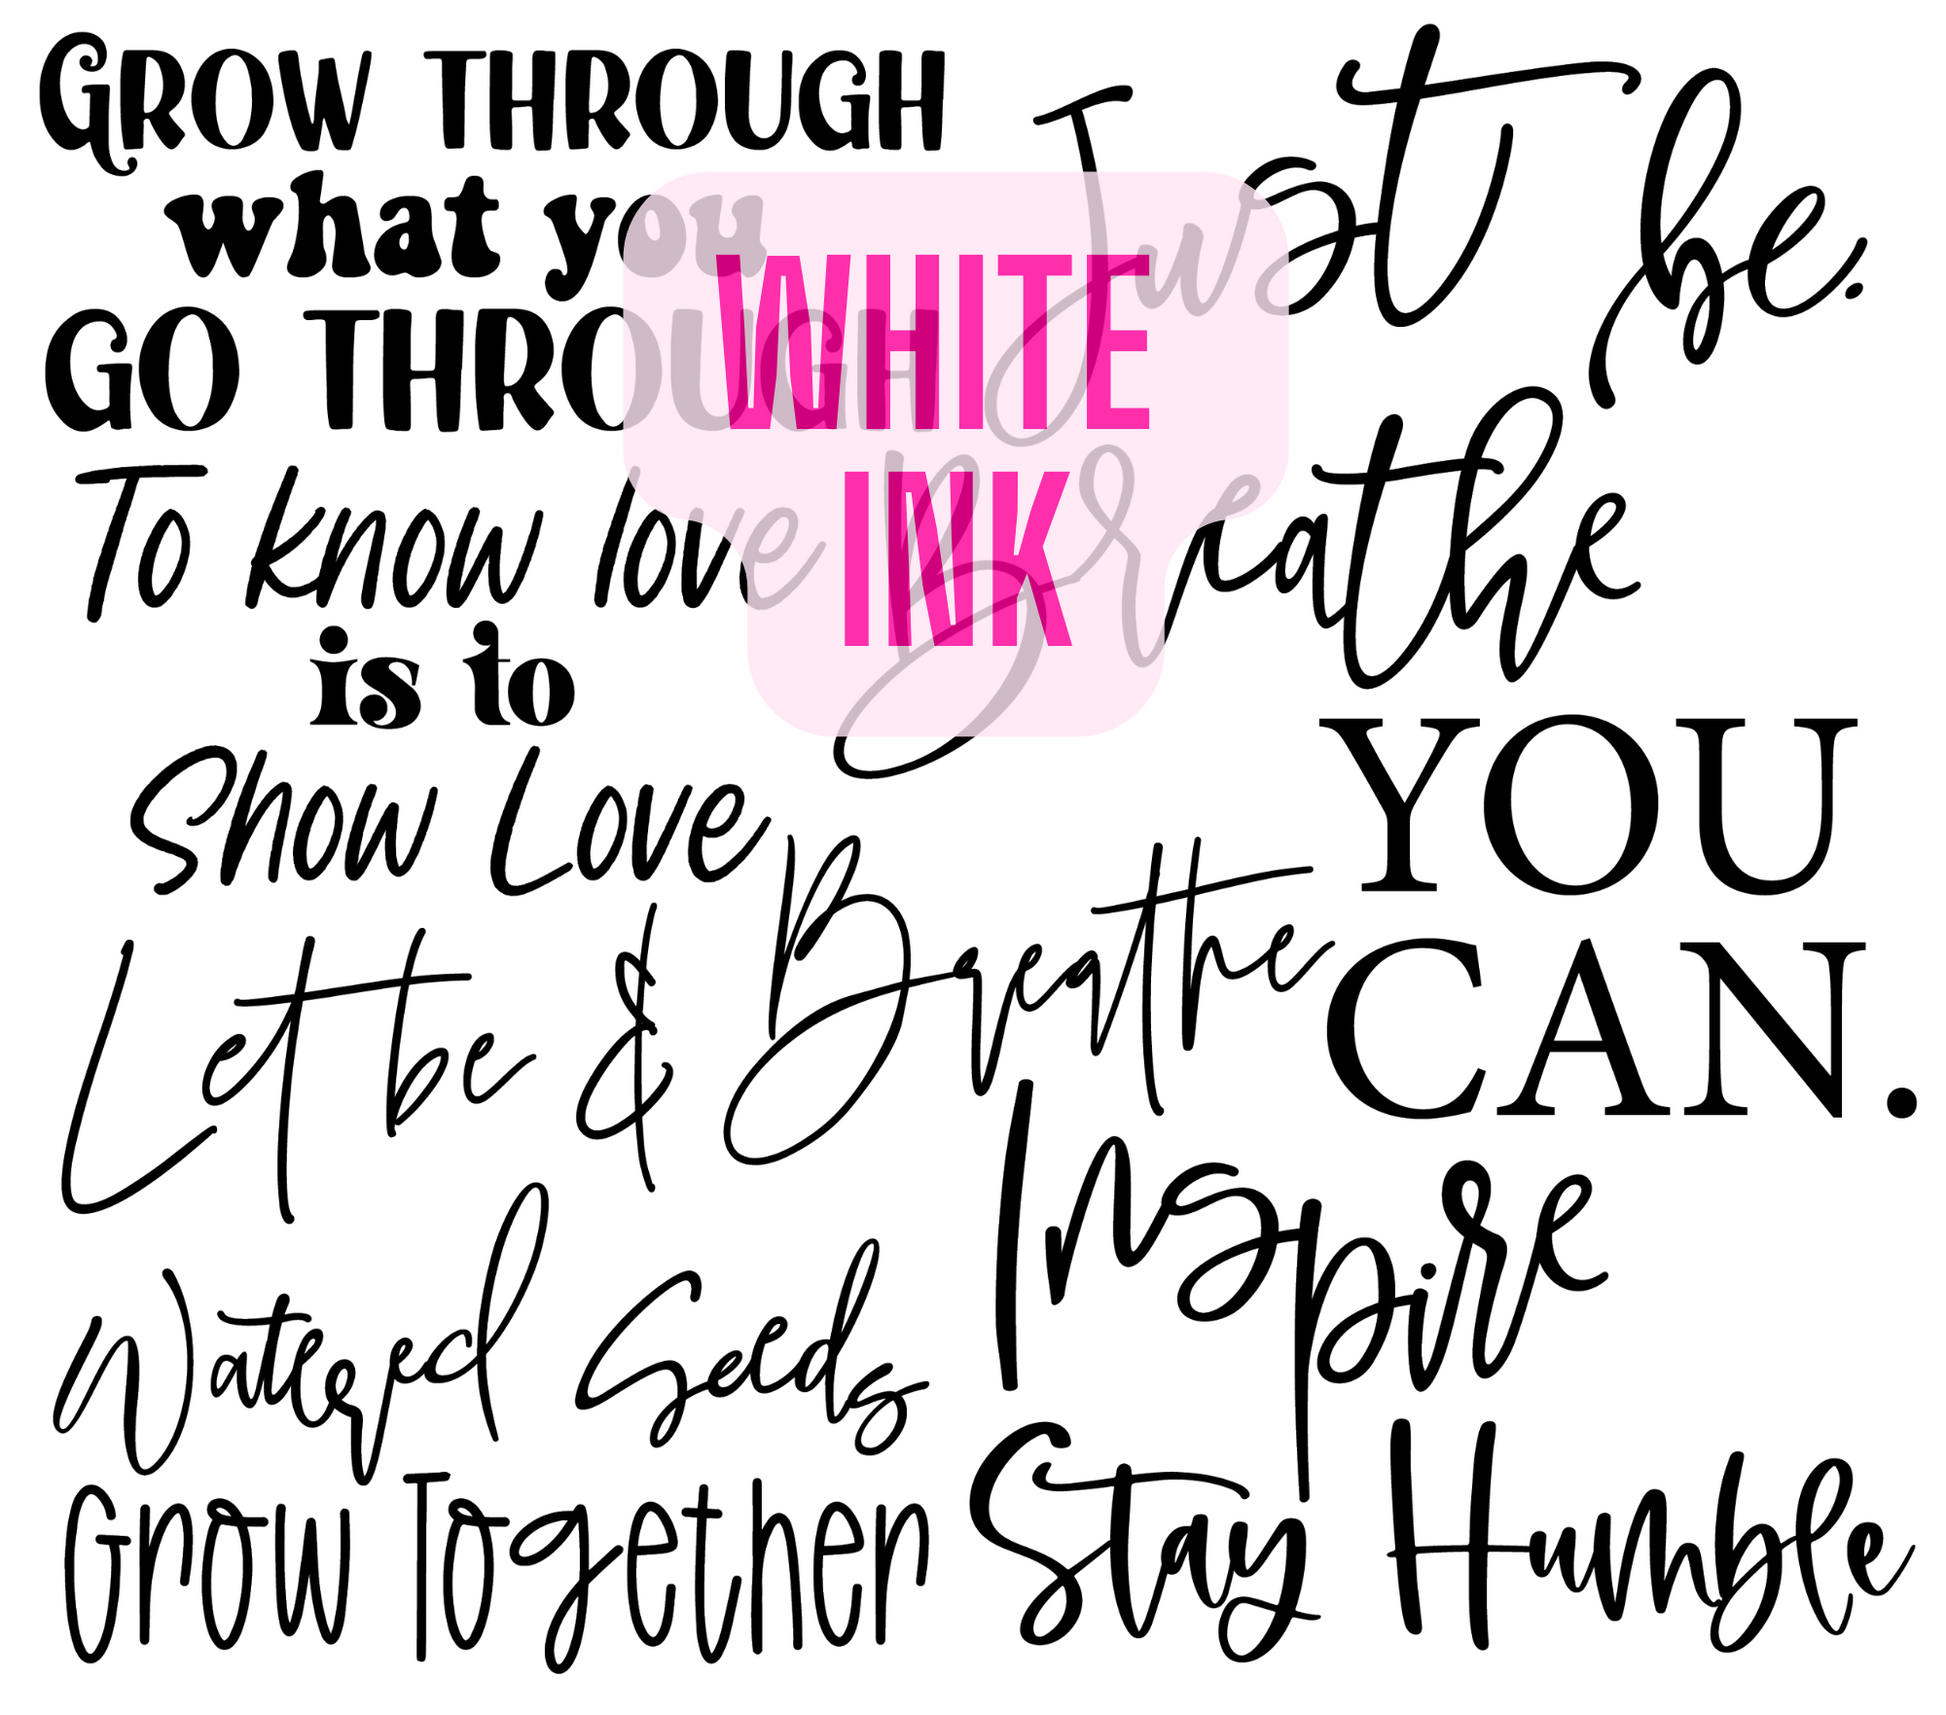 GROW THROUGH
what you
GO THROUGH
To know love
is to
Show Love
Just be.
Breathe
WHITE
INK
YOU
CAN.
Let it be & Breathe
Inspire
Watered Seeds
Grow Together
Stay Humble